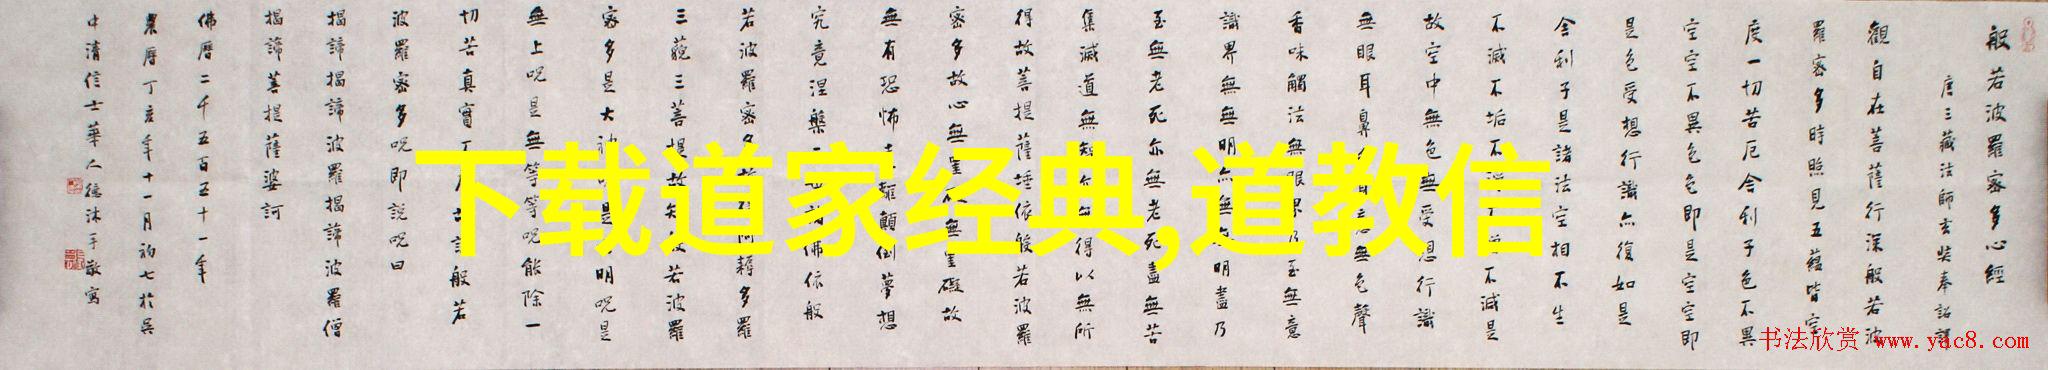 般若波羅密多心經
唐三藏法師玄奘奉詔譯
觀自在菩薩行深般若波
羅密多時照見五蘊皆空
度一切苦厄舍利子色不異
空空不異色色即是空空即
是色受想行識亦復如是
舍利子是諸法空相不生
不滅不垢不
不減是
故空中無色無受想行識
無眼耳鼻
無色聲
香味觸法無眼界乃至無意
識界無無明亦無
明盡乃
至無老死亦無老死盡無苦
集滅道無智亦無得以無所
得故菩提薩埵依般若波羅
密多故心無罣
無罣礙故
無有恐怖
顛倒夢想
究竟涅槃
佛依般
若波羅密多
耨多羅
三藐三菩提故知
若波羅
密多是大神
明呪是
無上呪是無等等呪能除一
切苦真實不
說般若
波羅密多呪即說呪曰
揭諦揭諦波羅揭諦波羅僧
揭諦菩提薩婆訶
佛曆二千五百五十一年
農曆丁亥年十一月初七於吳
中清信士華人德沐手敬寫
下载道家经典,道教信
书法欣赏 www.yac8.com